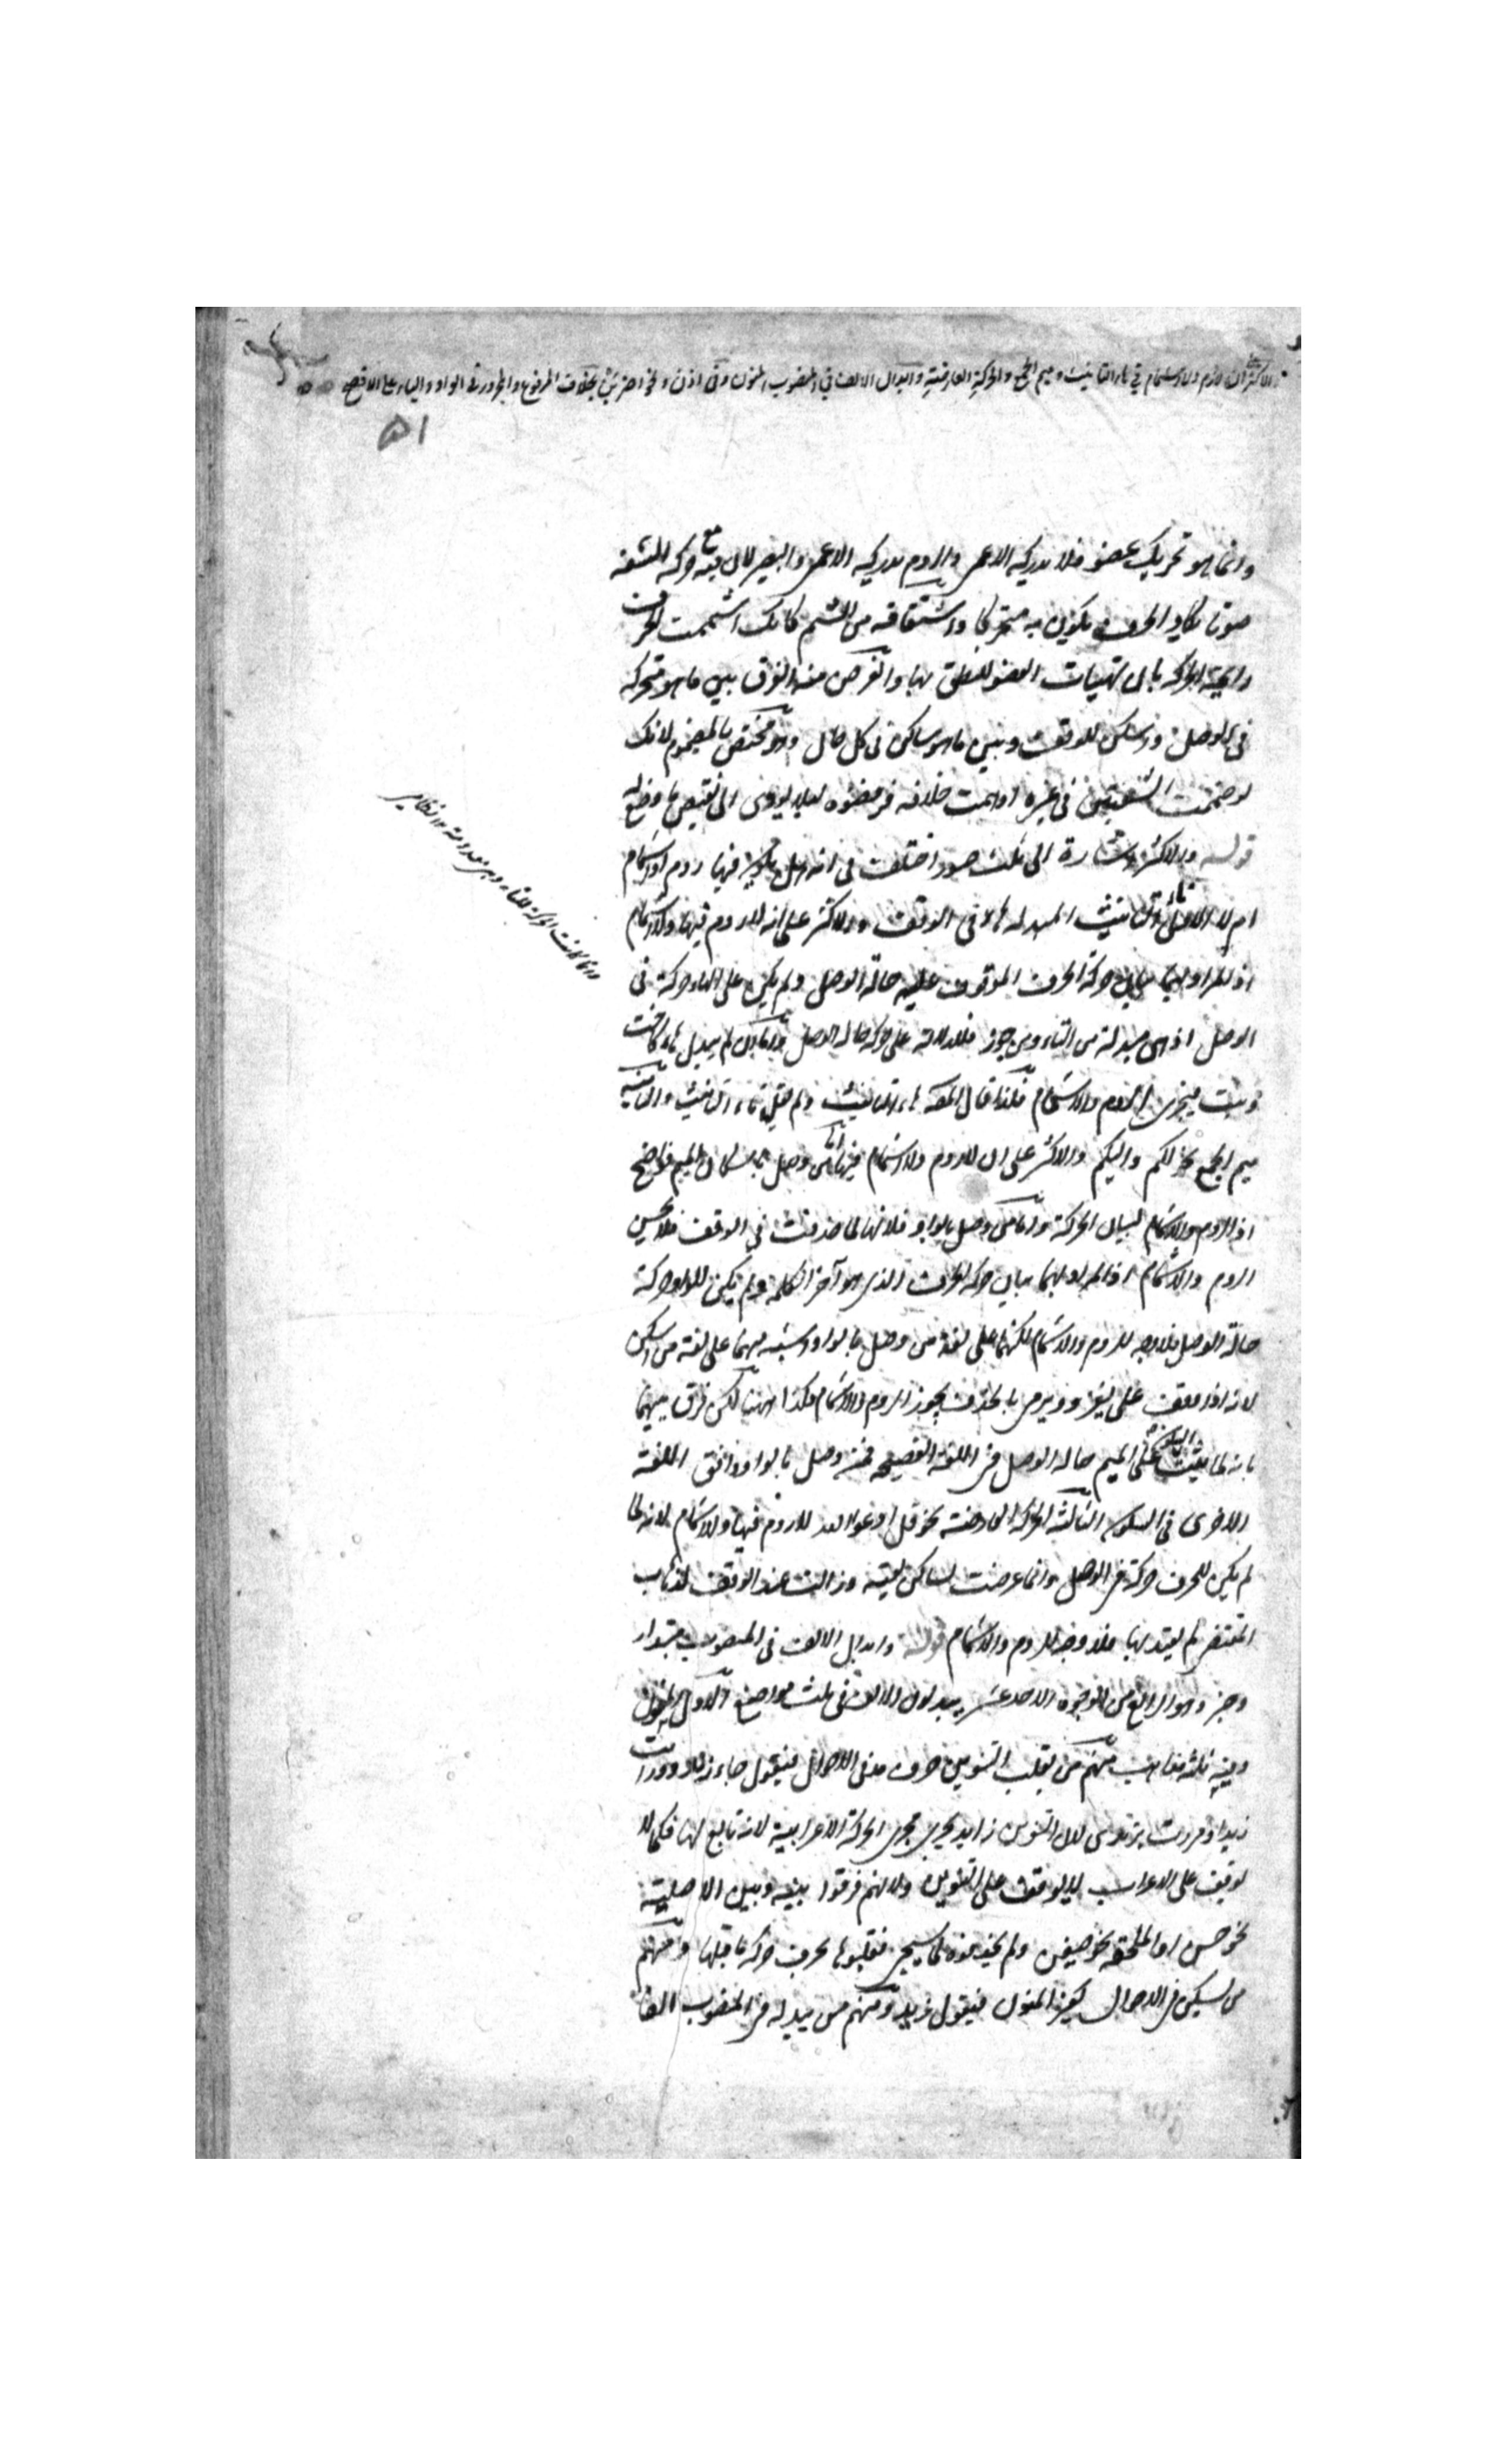 والاكثر على ان لا روم ولا اشمام في هاء التانيث وميم الجمع والحركة العارضية وابدال الالف في المنصوب المنون وفي اذن ونحو اضربن بخلاف المرفوع والمجرور في الواو والياء على الافصح
٥١
وانما هو تحريك عضو فلا يدركه الاعمى والروم يدركه الاعمى والبصير لان فيه مع حركة الشفة
صوتا يكاد الحرف يكون به متحركا واشتقاقه من الشم كانك اشممت الحرف
رايحة الحركة بان تهيات العضو للنطق بها والغرض منه الفرق بين ما هو متحرك
في الوصل وسكن للوقف وبين ما هو ساكن في كل حال وهو مختص بالمضموم لانك
لو ضممت الشفتين في غيره اوهمت خلافه فرفضوه لئلا يودى الى نقيض ما وضع له
قوله والاكثر اشارة الى ثلث صور اختلف في انه هل يكون فيها روم او اشمام
ام لا الاولى تاء التانيث المبدلة هاء في الوقف والاكثر على انه لا روم فيها ولا اشمام
اذ المراد بهما بيان حركة الحرف الموقوف عليه حالة الوصل ولم يكن على الهاء حركة في
الوصل اذ هي مبدلة من التاء ومن جوز فللدلالة على حركة حالة الوصل واما ان لم يبدل هاء كاخت
وبنت فيجرى الروم والاشمام فلذا قال المصـ هاء التانيث ولم يقل تاء التانيث والثانية
ميم الجمع نحو لكم واليكم والاكثر على ان لا روم ولا اشمام فيها اما من وصل باسكان الميم فواضح
اذ الروم والاشمام لبيان الحركة واما من وصل بالواو فلانها لما حذفت في الوقف فلا يحسن
الروم والاشمام اذ المراد بهما بيان حركة الحرف الذى هو آخر الكلمة ولم يكن للواو حركة
حالة الوصل فلا وجه للروم والاشمام لكنهما على لغة من وصل بالواو اشبه منهما على لغة من اسكن
لانه اذا وقف على يغزو ويرمى بالحذف يجوز الروم والاشمام فكذا ههنا لكن فرق بينهما
بانه لما يثبت السكون على الميم حالة الوصل في اللغة الفصيحة فمن وصل بالواو وافق اللغة
الاخرى في السكون الثالثة الحركة العارضة نحو قل ادعوا الله لا روم فيها ولا اشمام لانه لما
لم يكن للحرف حركة في الوصل وانما عرضت لساكن لقيته وزالت عند الوقف لذهاب
المقتضى لم يعتد بها فلا وجه للروم والاشمام قوله وابدال الالف في المنصوب مبتدا
وخبر وهو الرابع من الوجوه الاحد عشر يبدلون الالف في ثلث مواضع الاول المنون
وفيه ثلثة مذاهب منهم من يقلب التنوين حرف مد في الاحوال فيقول جاء زيدو ورايت
زيدا ومررت بزيدى لان التنوين زايد يجرى مجرى الحركة الاعرابية لانه تابع لها فكما لا
يوقف على الاعراب لا يوقف على التنوين ولانهم فرقوا بينه وبين الاصلية
نحو حسن او الملحقة نحو ضيفن ولم يحذفوه لما سيجئ فقلبوها بحرف حركة ما قبلها ومنهم
من يسكن في الاحوال كغير المنون فيقول زيد ومنهم من يبدله في المنصوب الفا
وانما كانت الحركة للتاء